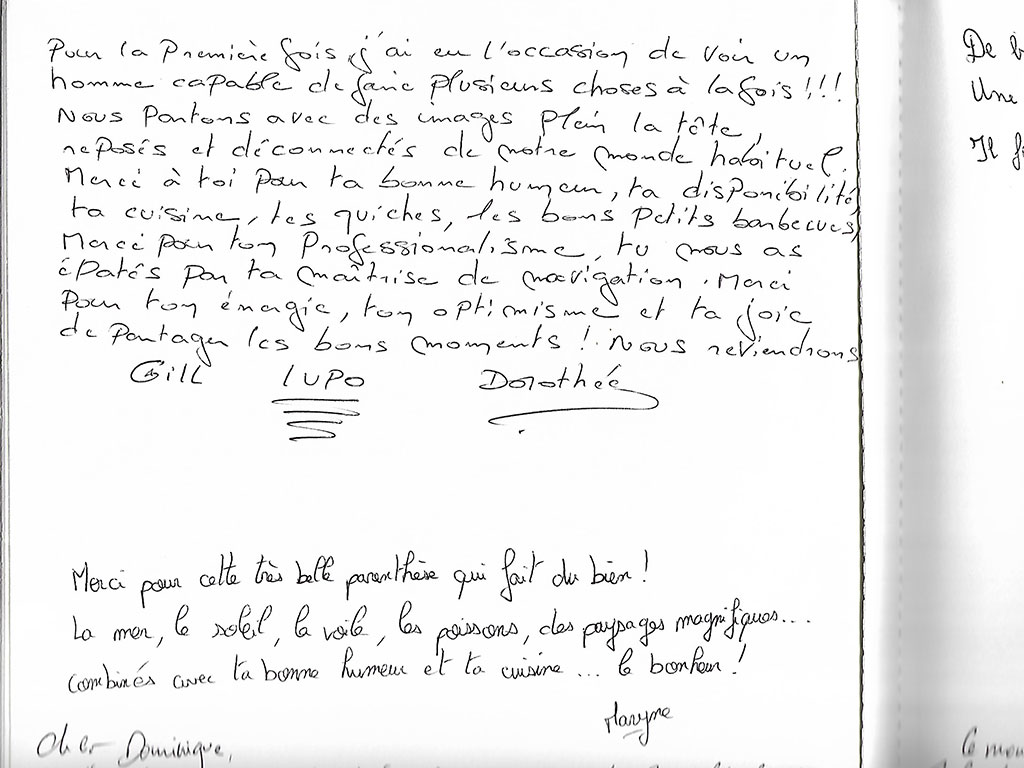 Pour la Première fois, j'ai eu l'occasion de voir un
homme capable de faire plusieurs choses à la fois!!!
Nous Partons avec des images plein la tête,
reposés et déconnectés de notre monde habituel.
Merci à toi pour ta bonne humeur, ta disponibilité,
ta cuisine, tes quiches, les bons petits barbecues,
Merci pour ton Professionalisme, tu nous as
épatés par ta maîtrise de navigation. Merci
Pour ton énergie, ton optimisme et ta joie
de Partager les bons moments! Nous reviendrons
Gill LUPO Dorothée
Merci pour cette très belle parenthèse qui fait du bien!
La mer, le soleil, la voile, les poissons, des paysages magnifiques...
combinés avec ta bonne humeur et ta cuisine... le bonheur!
Maryne
Cher Dominique,
De b
Une
Il f
le mou